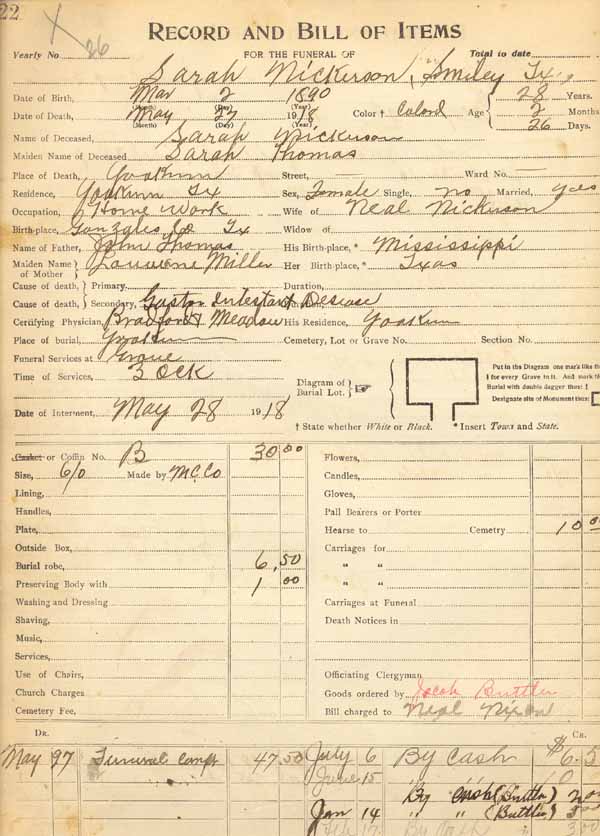 22
X 26
RECORD AND BILL OF ITEMS
Yearly No FOR THE FUNERAL OF Total to date
Sarah Nickerson, Smiley Tx,
Date of Birth, Mar 2 1890 28 Years.
(Month) (Day) (Year)
Date of Death, May 27 1918 Color † Colord Age 2 Months
(Month) (Day) (Year) 26 Days.
Name of Deceased, Sarah Nickerson
Maiden Name of Deceased Sarah Thomas
Place of Death, Yoakum Street, Ward No.
Residence, Yoakum Tx Sex, Female Single, no Married, yes
Occupation, Home Work Wife of Neal Nickerson
Birth-place, Gonzales Co Tx Widow of
Name of Father, John Thomas His Birth-place,* Mississippi
Maiden Name of Mother Miller Her Birth-place,* Txas
Cause of death, Primary Duration,
Cause of death, Secondary, Gastro Intestant Desease
Certifying Physician, Bradford & Meadow His Residence, Yoakum
Place of burial, Yoakum Cemetery, Lot or Grave No. Section No.
Funeral Services at Grave
Time of Services, 3 ock
Diagram of Burial Lot. ☞
Put in the Diagram one mark like th
† for every Grave in it. And mark t
Burial with double dagger thus: ‡
Designate site of Monument thus:
Date of Interment, May 28 1918
† State whether White or Black. * Insert Town and State.
Casket or Coffin No. B 30 00 Flowers,
Size, 6/0 Made by M.C.Co Candles,
Lining, Gloves,
Handles, Pall Bearers or Porter
Plate, Hearse to Cemetry 10 00
Outside Box, Carriages for
Burial robe, 6,50 " "
Preserving Body with 1 00 " "
Washing and Dressing Carriages at Funeral
Shaving, Death Notices in
Music,
Services,
Use of Chairs, Officiating Clergyman
Church Charges Goods ordered by Jacob Buttler
Cemetery Fee, Bill charged to Neal Nixon
DR. CR.
May 27 Funeral compt 47,50 July 6 By Cash $6.5
June 15 " "
By cash (Buttler) 2 00
Jan 14 " " (Buttler) 5 00
Feb 17